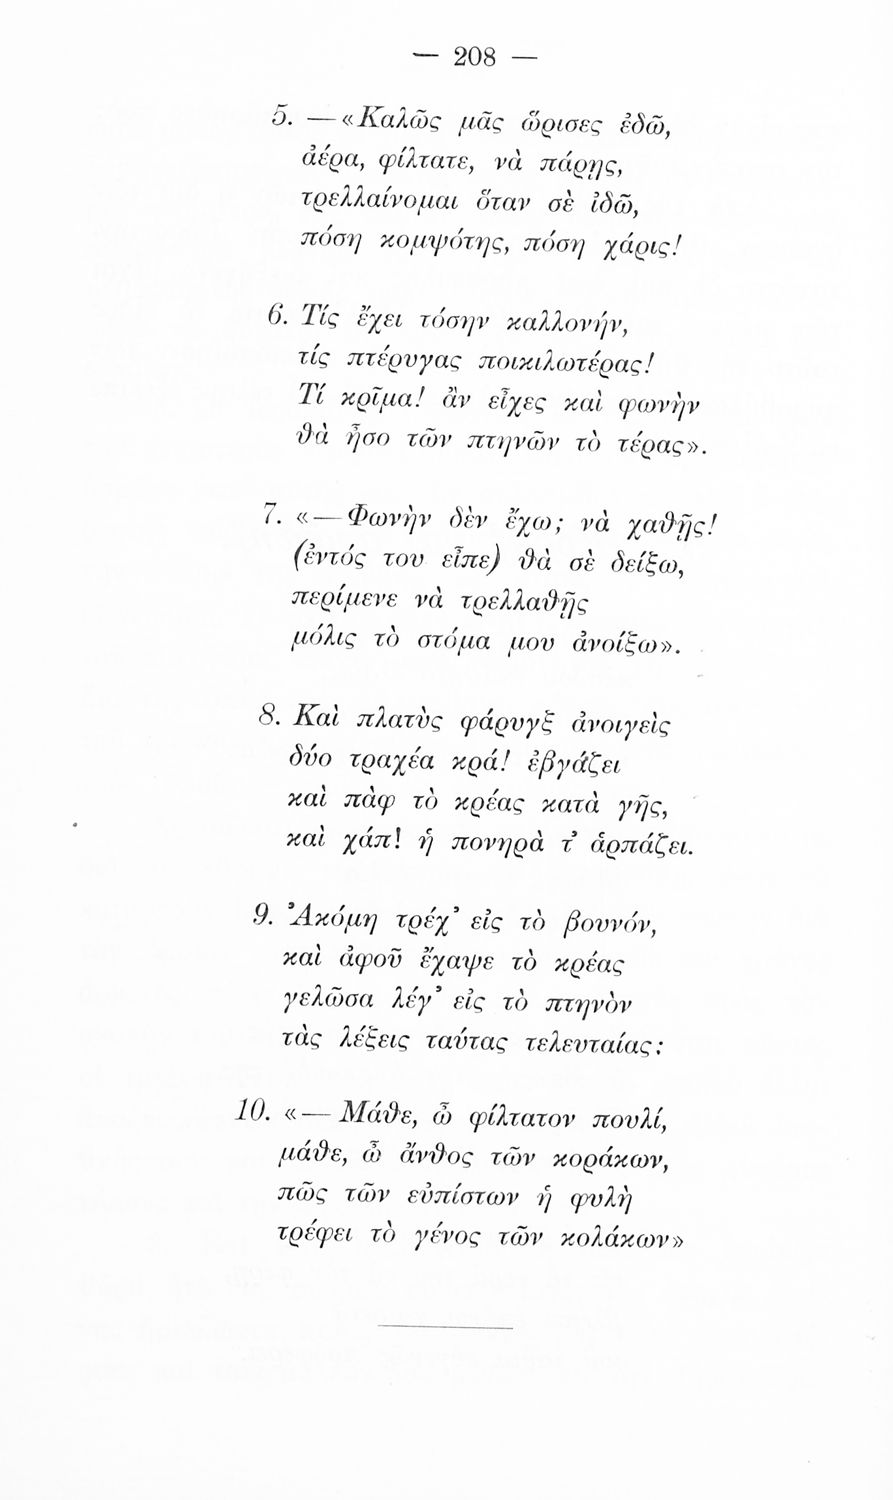 — 208 —
5. — «Καλῶς μᾶς ὥρισες ἐδῶ,
ἀέρα, φίλτατε, νὰ πάρῃς,
τρελλαίνομαι ὅταν σὲ ἰδῶ,
πόση κομψότης, πόση χάρις!
6. Τίς ἔχει τόσην καλλονήν,
τίς πτέρυγας ποικιλωτέρας!
Τί κρῖμα! ἂν εἶχες καὶ φωνὴν
θὰ ἦσο τῶν πτηνῶν τὸ τέρας».
7. «— Φωνὴν δὲν ἔχω; νὰ χαθῇς!
(ἐντός του εἶπε) θὰ σὲ δείξω,
περίμενε νὰ τρελλαθῇς
μόλις τὸ στόμα μου ἀνοίξω».
8. Καὶ πλατὺς φάρυγξ ἀνοιγεὶς
δύο τραχέα κρά! ἐβγάζει
καὶ πὰφ τὸ κρέας κατὰ γῆς,
καὶ χάπ! ἡ πονηρὰ τ' ἁρπάζει.
9. Ἀκόμη τρέχ' εἰς τὸ βουνόν,
καὶ ἀφοῦ ἔχαψε τὸ κρέας
γελῶσα λέγ' εἰς τὸ πτηνὸν
τὰς λέξεις ταύτας τελευταίας:
10. «— Μάθε, ὦ φίλτατον πουλί,
μάθε, ὦ ἄνθος τῶν κοράκων,
πῶς τῶν εὐπίστων ἡ φυλὴ
τρέφει τὸ γένος τῶν κολάκων»